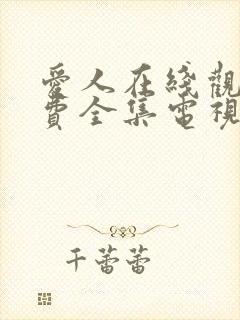 愛人在綫觀
費全集電視
千蕾蕾